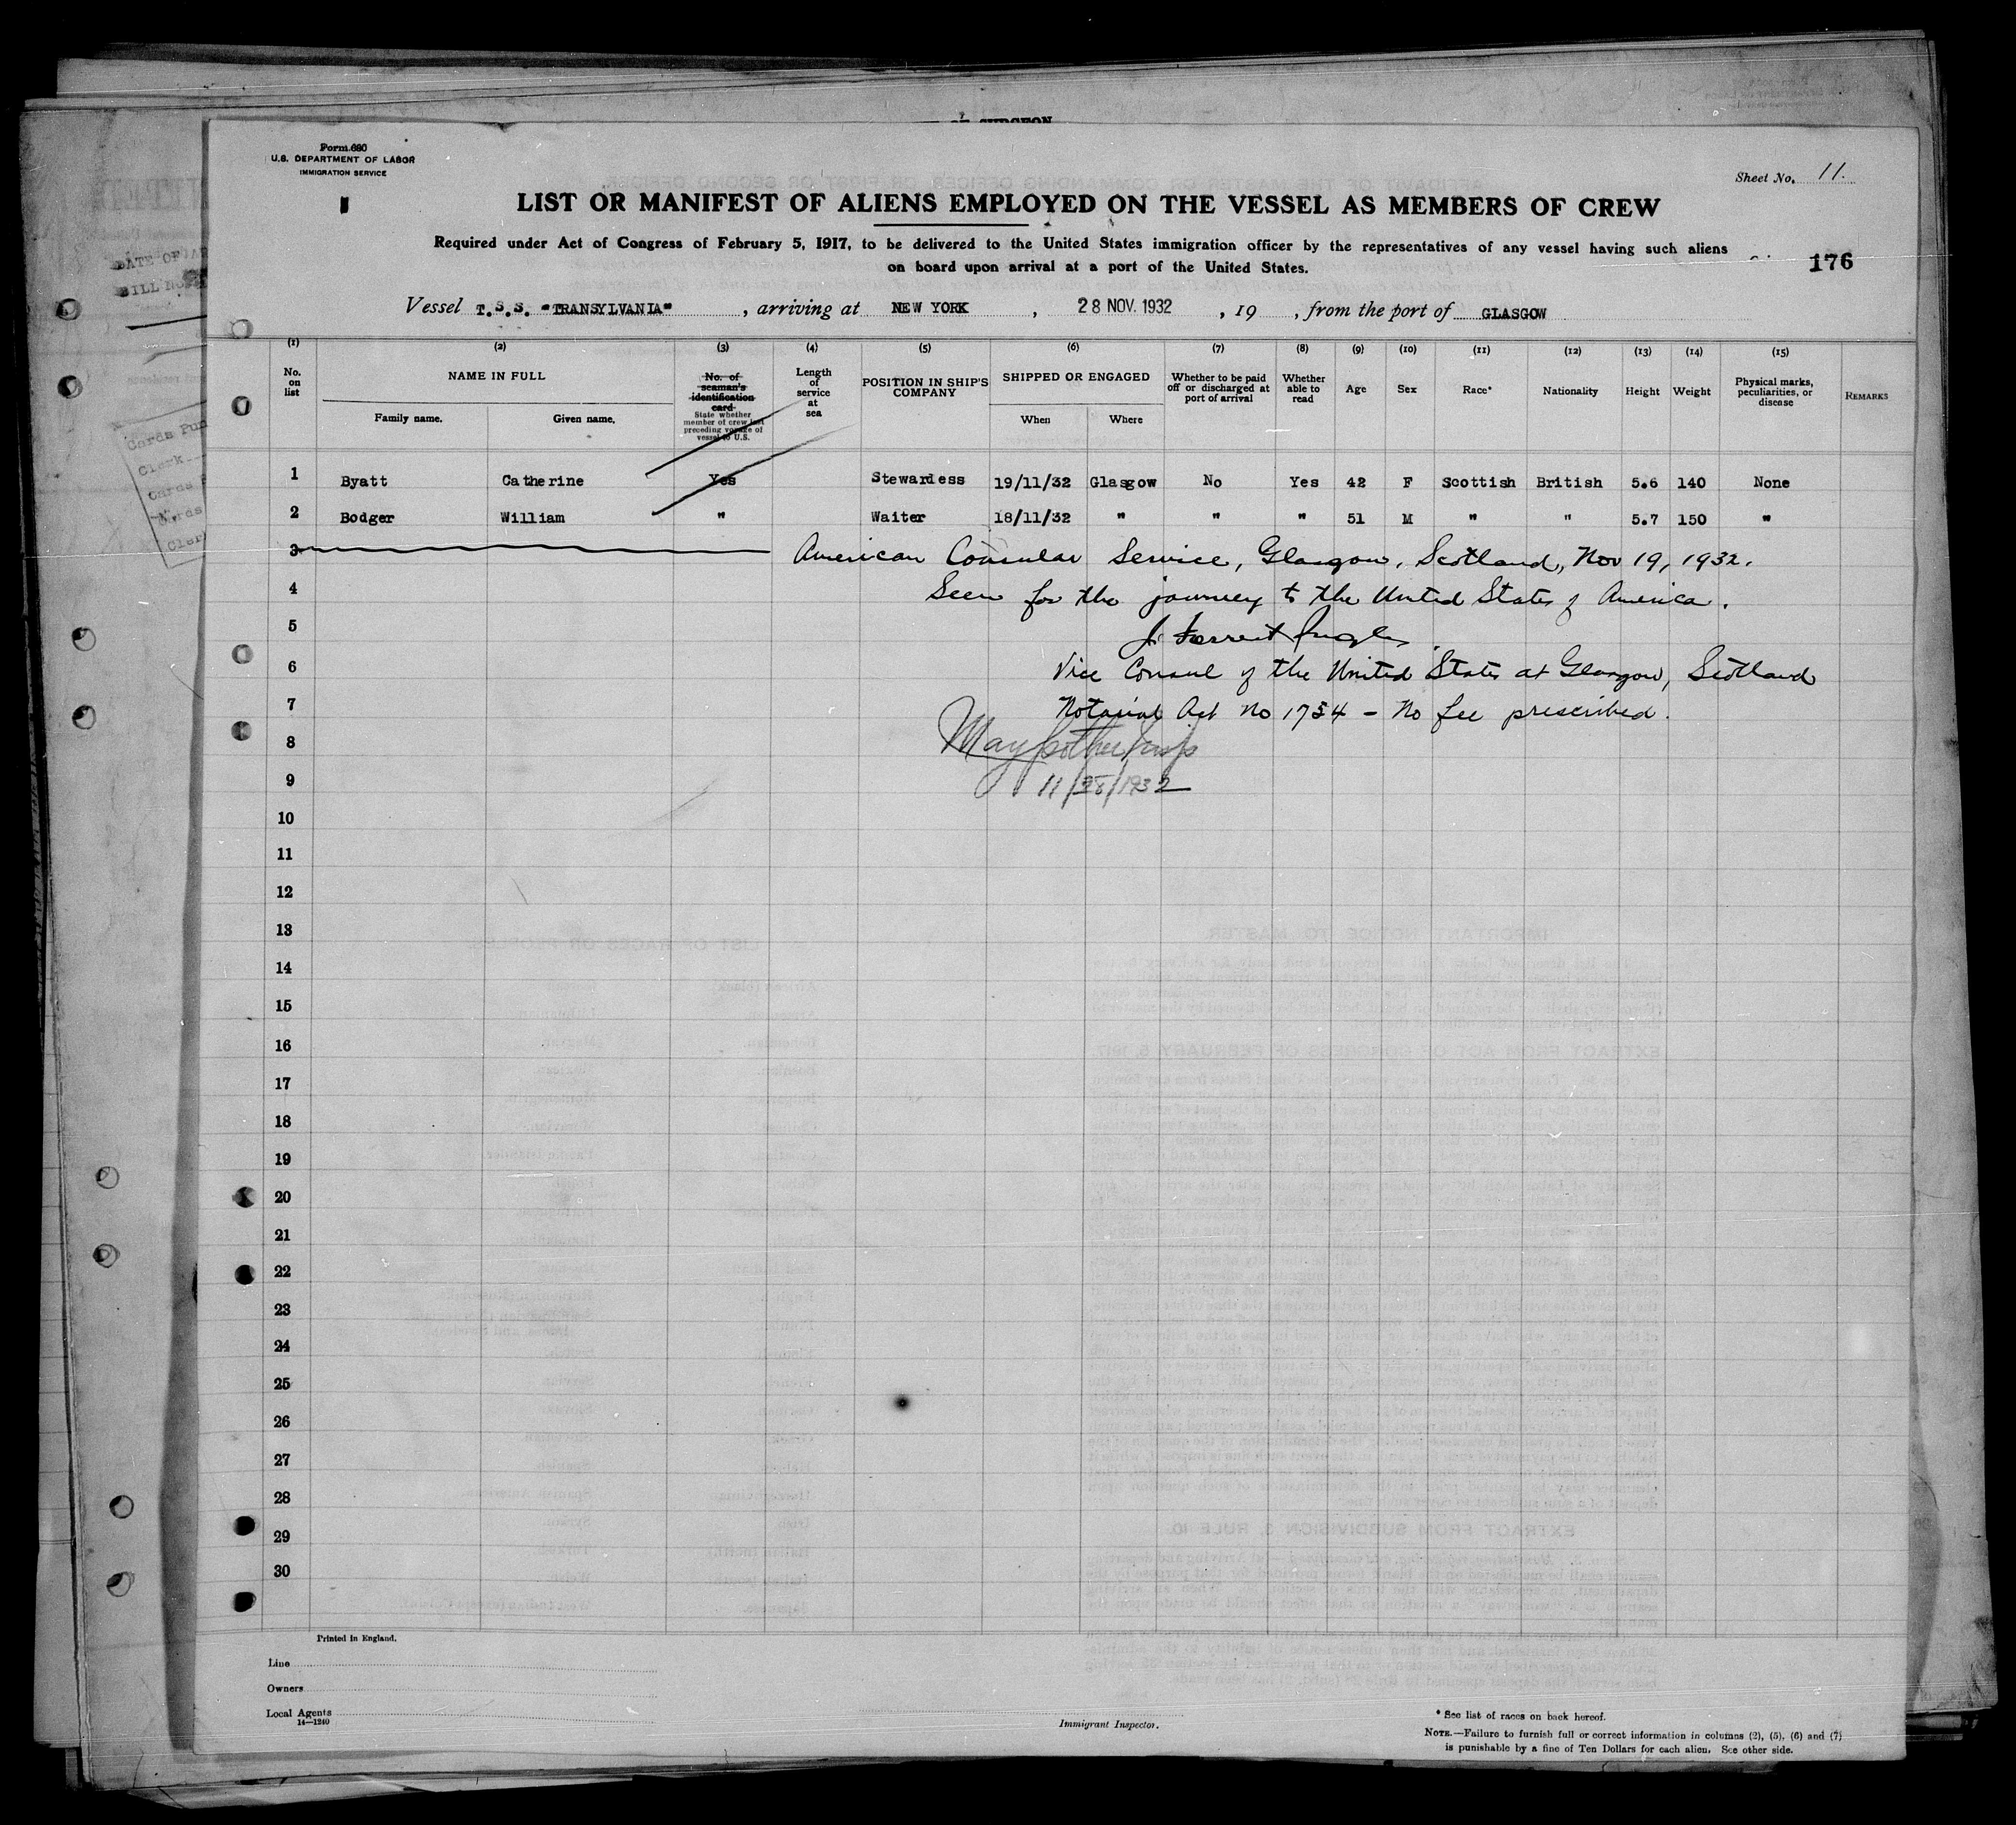 OF SURGEON
Form 680
U.S. DEPARTMENT OF LABOR
IMMIGRATION SERVICE
Sheet No. 11.
LIST OR MANIFEST OF ALIENS EMPLOYED ON THE VESSEL AS MEMBERS OF CREW
Required under Act of Congress of February 5, 1917, to be delivered to the United States immigration officer by the representatives of any vessel having such aliens
on board upon arrival at a port of the United States.
176
Vessel T.S.S. "TRANSYLVANIA", arriving at NEW YORK, 28 NOV. 1932, 19 , from the port of GLASGOW
(1) (2) (3) (4) (5) (6) (7) (8) (9) (10) (11) (12) (13) (14) (15)
No. on list
NAME IN FULL
Family name. Given name.
No. of seaman's identification card
State whether member of crew last preceding voyage of vessel to U.S.
Length of service at sea
POSITION IN SHIP'S COMPANY
SHIPPED OR ENGAGED
When Where
Whether to be paid off or discharged at port of arrival
Whether able to read
Age
Sex
Race*
Nationality
Height
Weight
Physical marks, peculiarities, or disease
REMARKS
1 Byatt Catherine Yes Stewardess 19/11/32 Glasgow No Yes 42 F Scottish British 5.6 140 None
2 Bodger William " Waiter 18/11/32 " " " 51 M " " 5.7 150 "
3 American Consular Service, Glasgow, Scotland, Nov 19, 1932.
4 Seen for the journey to the United States of America.
5 J. Forrest
6 Vice Consul of the United States at Glasgow, Scotland
7 Notarial Act No 1734 - No fee prescribed.
8
9 11/28/1932
10
11
12
13
14
15
16
17
18
19
20
21
22
23
24
25
26
27
28
29
30
Printed in England.
Line
Owners
Local Agents
14—1240
Immigrant Inspector.
* See list of races on back hereof.
NOTE.—Failure to furnish full or correct information in columns (2), (5), (6) and (7)
is punishable by a fine of Ten Dollars for each alien. See other side.